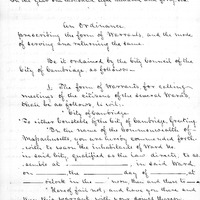 An Ordinance
prescribing the form of Warrants, and the mode
of serving and returning the same.
Be it ordained by the City Council of the
City of Cambridge, as follows.
1. The form of Warrants for calling
meetings of the citizens of the several Wards
shall be as follows, to wit.
City of Cambridge.
To either Constable of the City of Cambridge, Greeting.
In the name of the Commonwealth of
Massachusetts, you are hereby commanded forth-
with, to warn the inhabitants of Ward No.
in said City, qualified as the law directs, to as-
semble at in said Ward,
on the day of at
o'clock in the noon, then and there to
Hereof fail not, and have you there and
then this warrant with your doings thereon